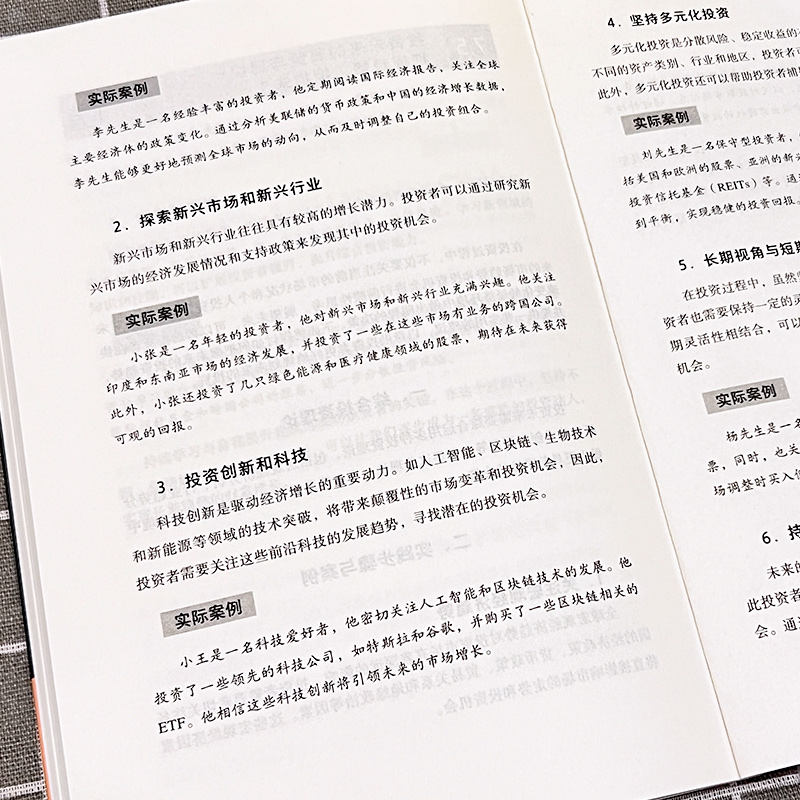 实际案例
李先生是一名经验丰富的投资者，他定期阅读国际经济报告，关注全球
主要经济体的政策变化。通过分析美联储的货币政策和中国的经济增长数据，
李先生能够更好地预测全球市场的动向，从而及时调整自己的投资组合。
2. 探索新兴市场和新兴行业
新兴市场和新兴行业往往具有较高的增长潜力。投资者可以通过研究新
兴市场的经济发展情况和支持政策来发现其中的投资机会。
实际案例
小张是一名年轻的投资者，他对新兴市场和新兴行业充满兴趣。他关注
印度和东南亚市场的经济发展，并投资了一些在这些市场有业务的跨国公司。
此外，小张还投资了几只绿色能源和医疗健康领域的股票，期待在未来获得
可观的回报。
3. 投资创新和科技
科技创新是驱动经济增长的重要动力。如人工智能、区块链、生物技术
和新能源等领域的技术突破，将带来颠覆性的市场变革和投资机会，因此，
投资者需要关注这些前沿科技的发展趋势，寻找潜在的投资机会。
实际案例
小王是一名科技爱好者，他密切关注人工智能和区块链技术的发展。他
投资了一些领先的科技公司，如特斯拉和谷歌，并购买了一些区块链相关的
ETF。他相信这些科技创新将引领未来的市场增长。
4. 坚持多元化投资
多元化投资是分散风险、稳定收益的
不同的资产类别、行业和地区，投资者
此外，多元化投资还可以帮助投资者捕
实际案例
刘先生是一名保守型投资者，
括美国和欧洲的股票、亚洲的新兴
投资信托基金（REITs）等。通
到平衡，实现稳健的投资回报。
5. 长期视角与短期
在投资过程中，虽然
资者也需要保持一定的灵
期灵活性相结合，可以
机会。
实际案例
杨先生是一名
票，同时，也关
场调整时买入
6. 持
未来的
此投资者
会。通